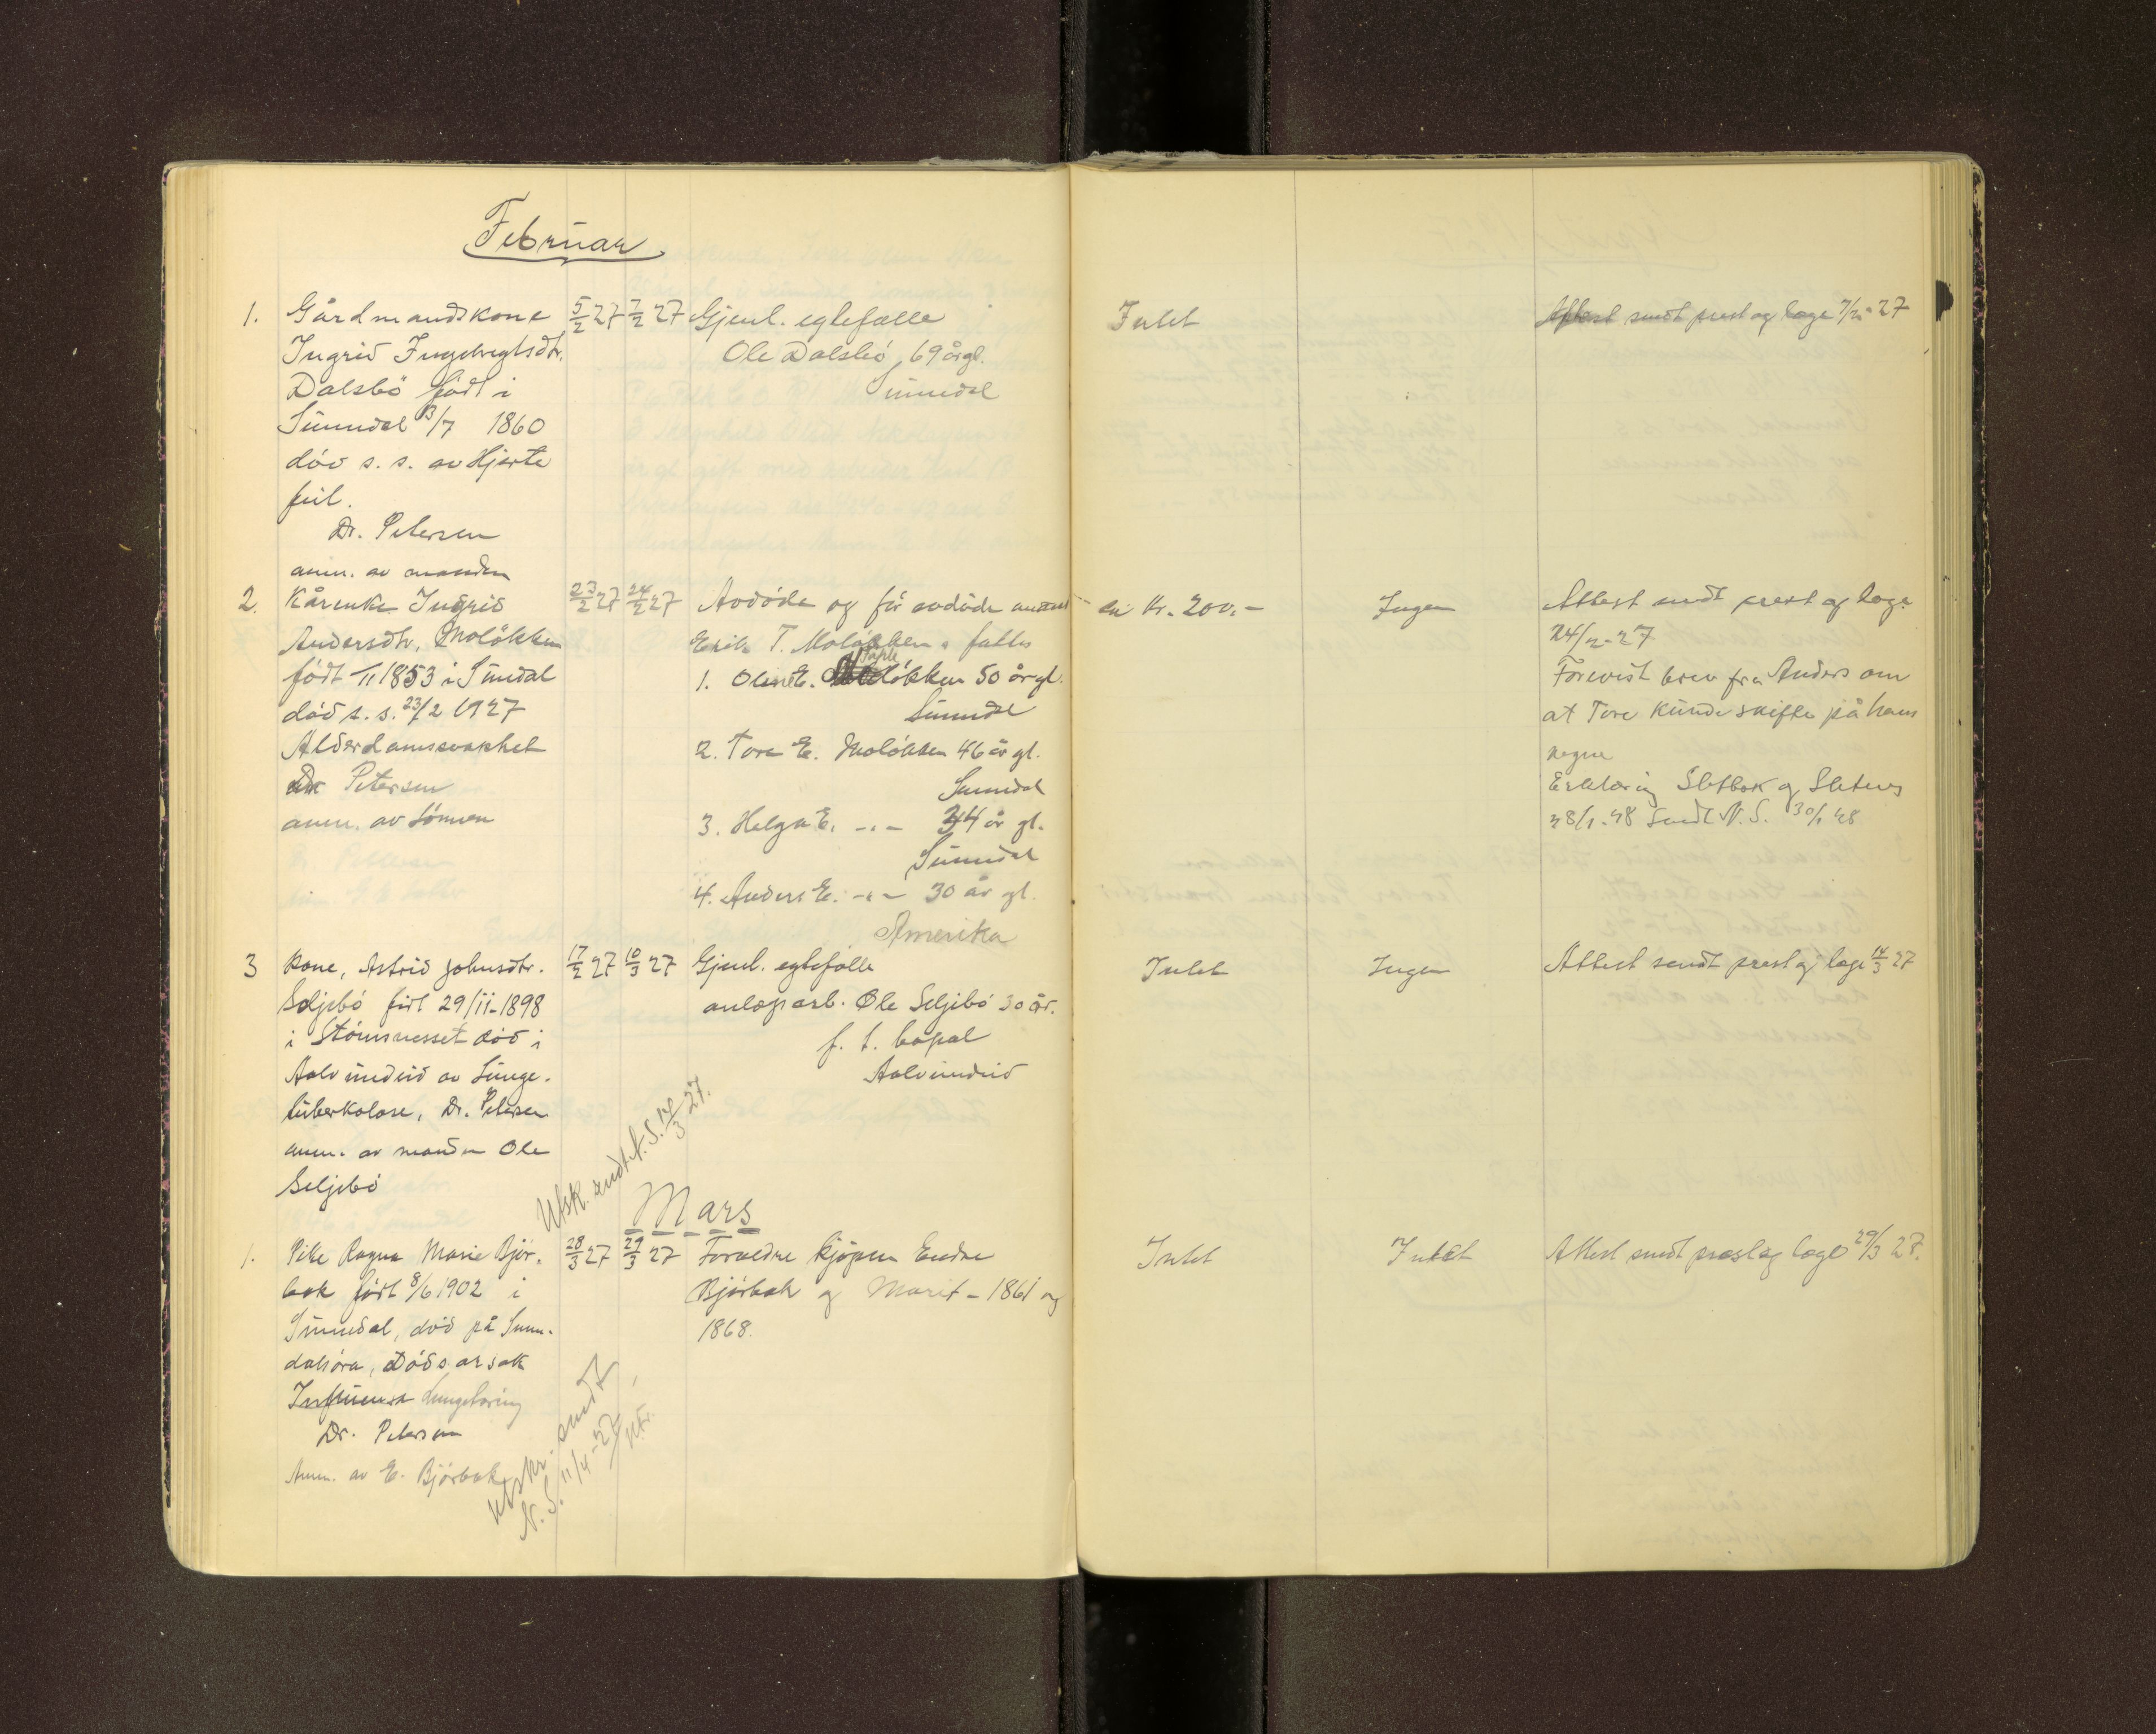 Februar
1. Gårdmandskone 5/2 27 7/2 27 Gjenl. egtefælle Intet Attest sendt prest og læge 7/2-27
Ingrid Ingebregtsdtr. Ole Dalsbö, 69 årgl.
Dalsbö född i Sunndal
Sunndal 13/7 1860
död s. s. av Hjerte
feil.
Dr. Petersen
anm. av manden
2. Kårenke Ingrid 23/2 27 24/2 27 Avdöde og för avdöde en Kr. 200.- Ingen Attest sendt prest og læge
Andersdtr. Molökken Erik T. Molökken. 24/2-27
född 1853 i Sundal 1. E. lökken 50 årgl. Forevist brev fra Anders om
död s. s. 23/2 1927 Sunndal at Tore kunde skifte på hans
Alderdomssvakhet 2. Tore E. Molökken 46 år gl. vegne
Dr. Petersen Sunndal Erklæring og
anm. av Sönnen 3. Helga E. -"- 44 år gl. 28/1-48 Sendt N.S. 30/1 48
Sunndal
4. Anders E. -"- 30 år gl.
Amerika
3 Kone, Astrid Johnsdtr. 17/2 27 10/3 27 Gjenl. egtefælle Intet Ingen Attest sendt prest og læge 14/3 27
Seljebö född 29/11-1898 anlægsarb. Ole Seljebö 30 år.
i Stömsnesset död i f. t. bopæl
Aalvundeid av Lunge- Aalvundeid
tuberkolose, Dr. Petersen
anm. av manden Ole
Seljebö
Utsk. sendt N.S. 14/3 27.
Mars
1. Pike Ragna Marie Björ- 28/3 27 29/3 27 Forældre kjöpm Endre Intet Intet Attest sendt prest og læge 29/3 27.
bak född 8/6 1902 i Björbak og Marit - 1861 og
Sunndal, död på Sunn- 1868.
dalsöra, Dödsarsak
Influensa Lungetæring
Dr. Petersen
Anm. av E. Björbak
Utskr. sendt
N.S. 11/4-27